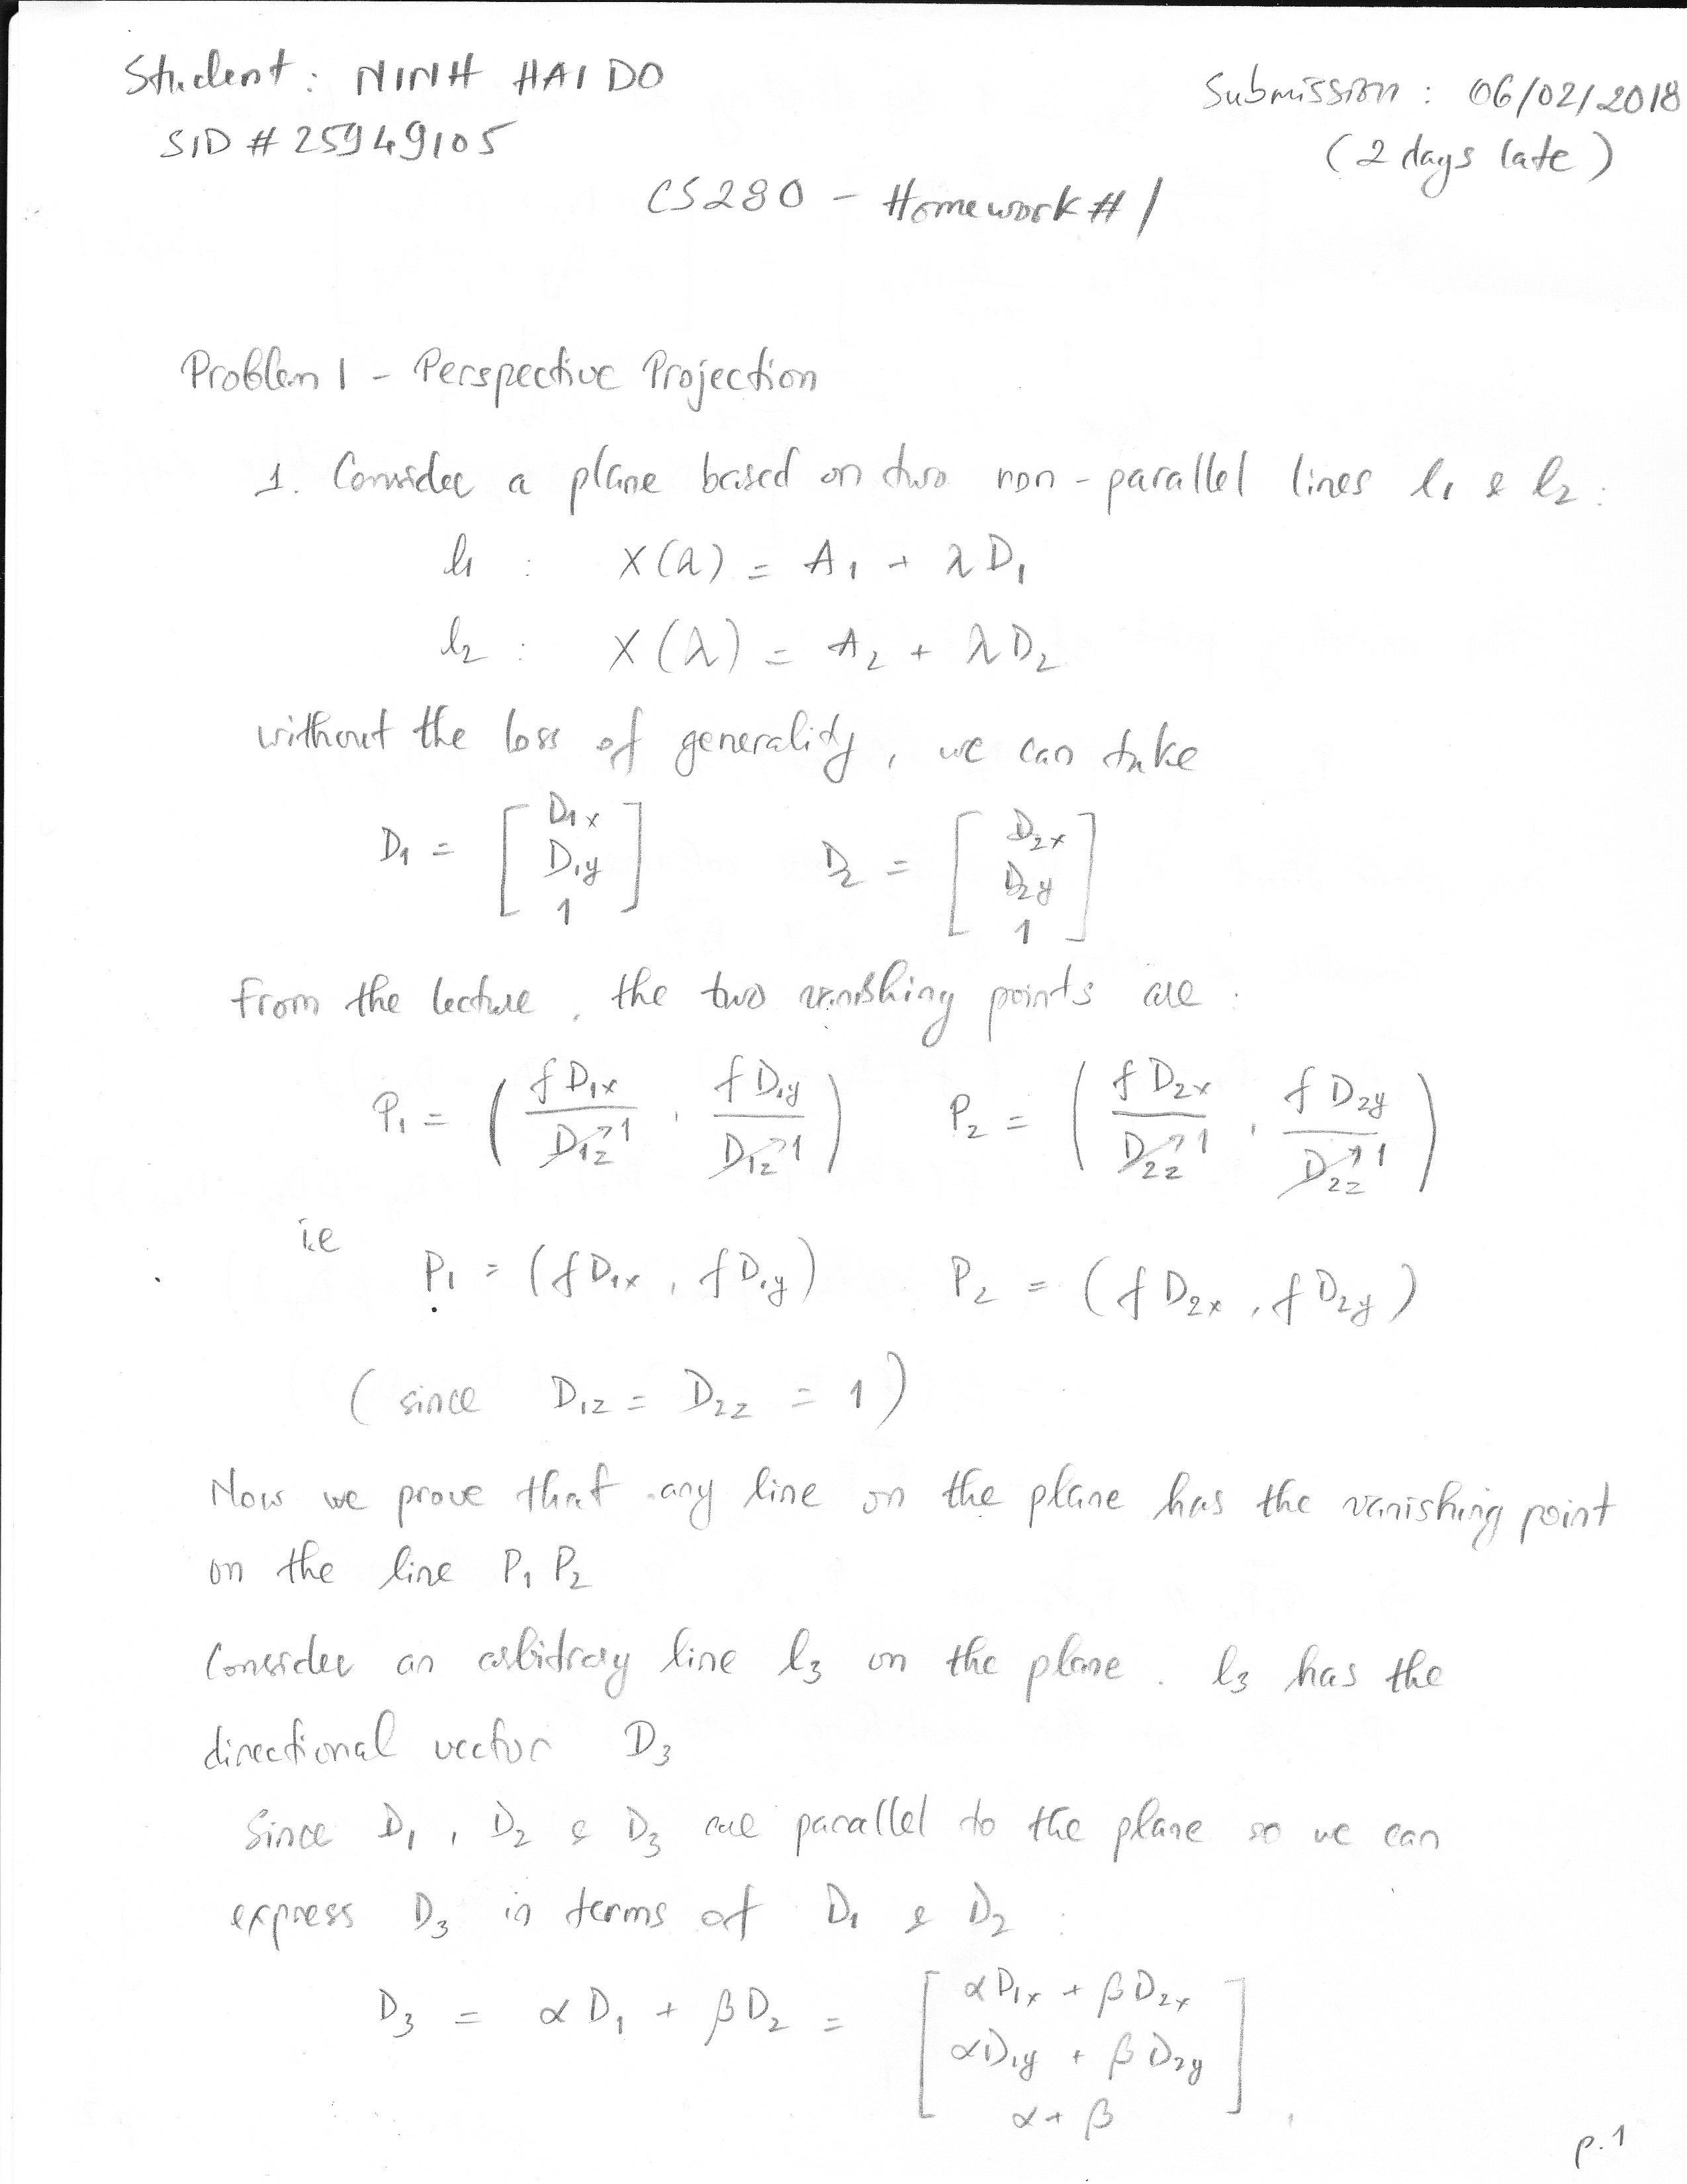 Student: NINH HAI DO
Submission: 06/02/2018
SID # 25949105
(2 days late)
CS280 - Homework # 1
Problem 1 - Perspective Projection
1. Consider a plane based on two non-parallel lines l₁ & l₂:
l₁ : X(λ) = A₁ + λD₁
l₂ : X(λ) = A₂ + λD₂
without the loss of generality, we can take
D₁ = [D₁x D₁y 1] D₂ = [D₂x D₂y 1]
from the lecture, the two vanishing points are:
P₁ = (fD₁x / D₁z→1, fD₁y / D₁z→1) P₂ = (fD₂x / D₂z→1, fD₂y / D₂z→1)
i.e
P₁ = (fD₁x, fD₁y) P₂ = (fD₂x, fD₂y)
(since D₁z = D₂z = 1)
Now we prove that any line on the plane has the vanishing point
on the line P₁ P₂
Consider an arbitrary line l₃ on the plane. l₃ has the
directional vector D₃
Since D₁, D₂ & D₃ are parallel to the plane so we can
express D₃ in terms of D₁ & D₂ :
D₃ = αD₁ + βD₂ = [αD₁x + βD₂x αD₁y + βD₂y α + β]
p.1